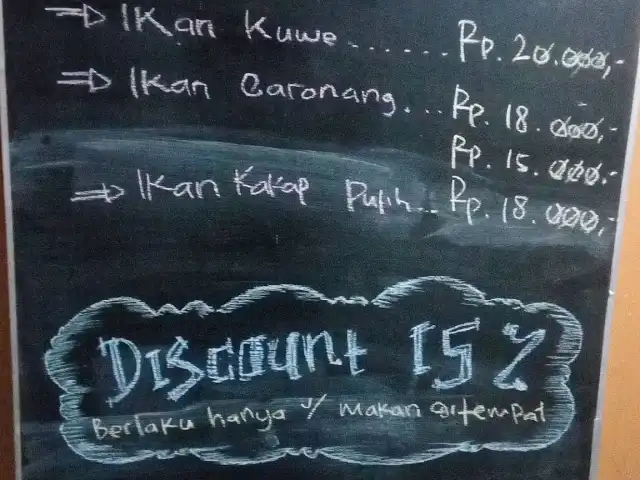 ⇒ Ikan Kuwe....... Rp. 20.000,-
⇒ Ikan Baronang... Rp. 18.000,-
Rp. 15.000.-
⇒ Ikan Kakap Putih.. Rp. 18.000,-
Discount 15%
Berlaku hanya u/ makan ditempat